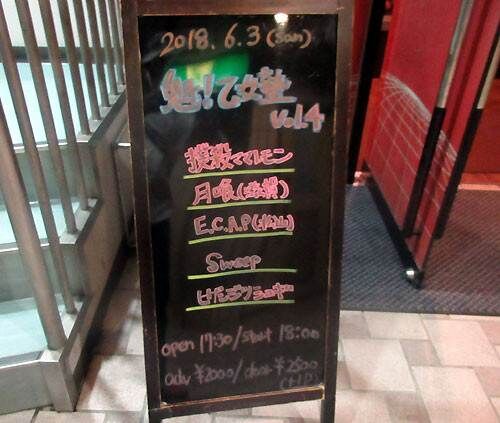 2018.6.3(sun)
魁!乙女塾
vol.4
撲殺ててレモン
月喰(後攻)
E.C.A.P(松山)
Sweep
けだまり
open 17:30/start 18:00
adv ¥2000/door ¥2500
(+1D)